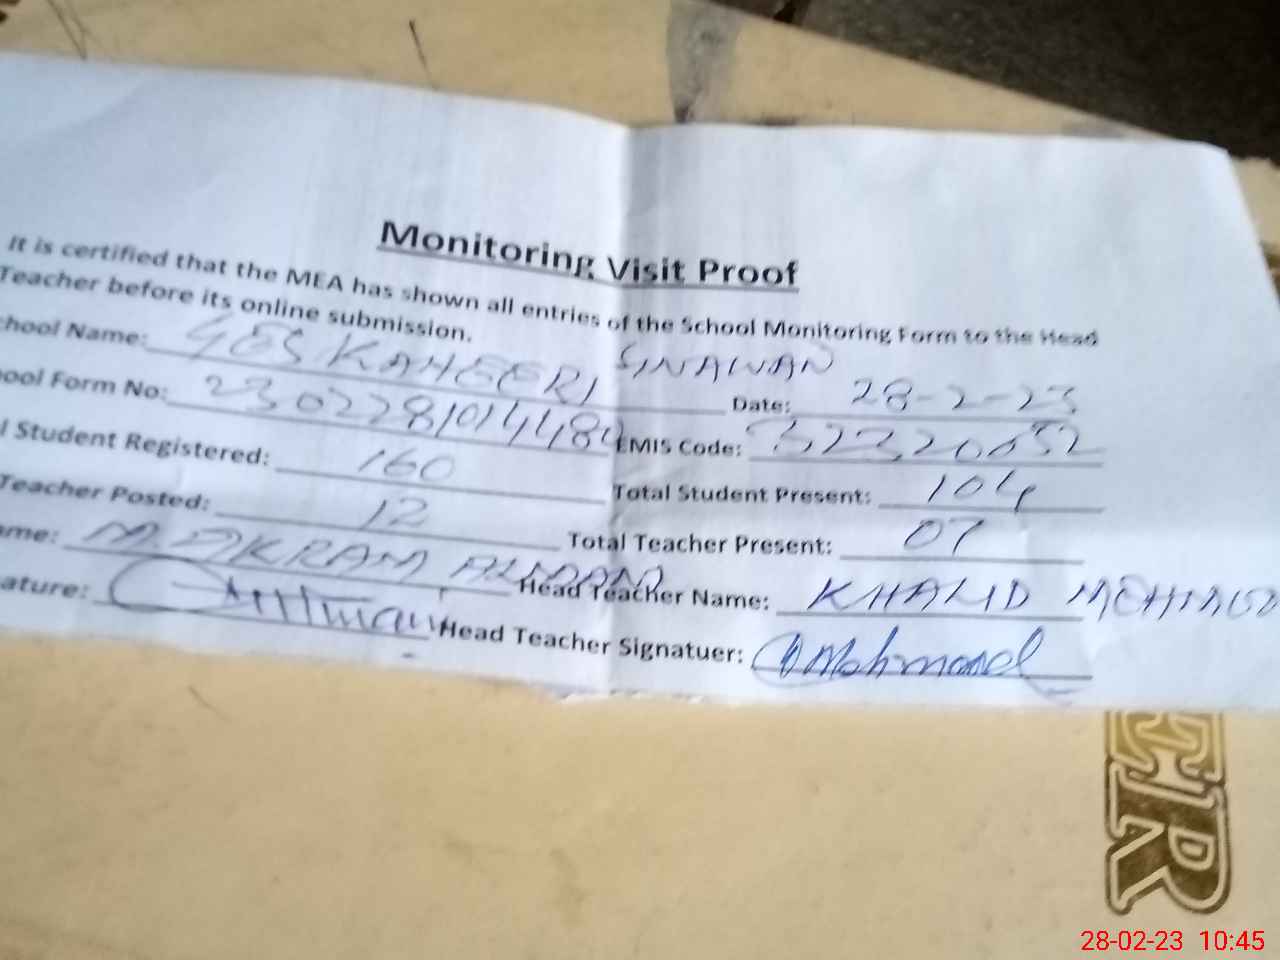 Monitoring Visit Proof
It is certified that the MEA has shown all entries of the School Monitoring Form to the Head
Teacher before its online submission.
chool Name: GES KAHEERI SINAWAN Date: 28-2-23
ool Form No: EMIS Code: 32320052
l Student Registered: 160 Total Student Present: 104
Teacher Posted: 12 Total Teacher Present: 07
ame: M. AKRAM Head Teacher Name: KHALID
ature: Head Teacher Signatuer: Mahmood
ER
28-02-23 10:45